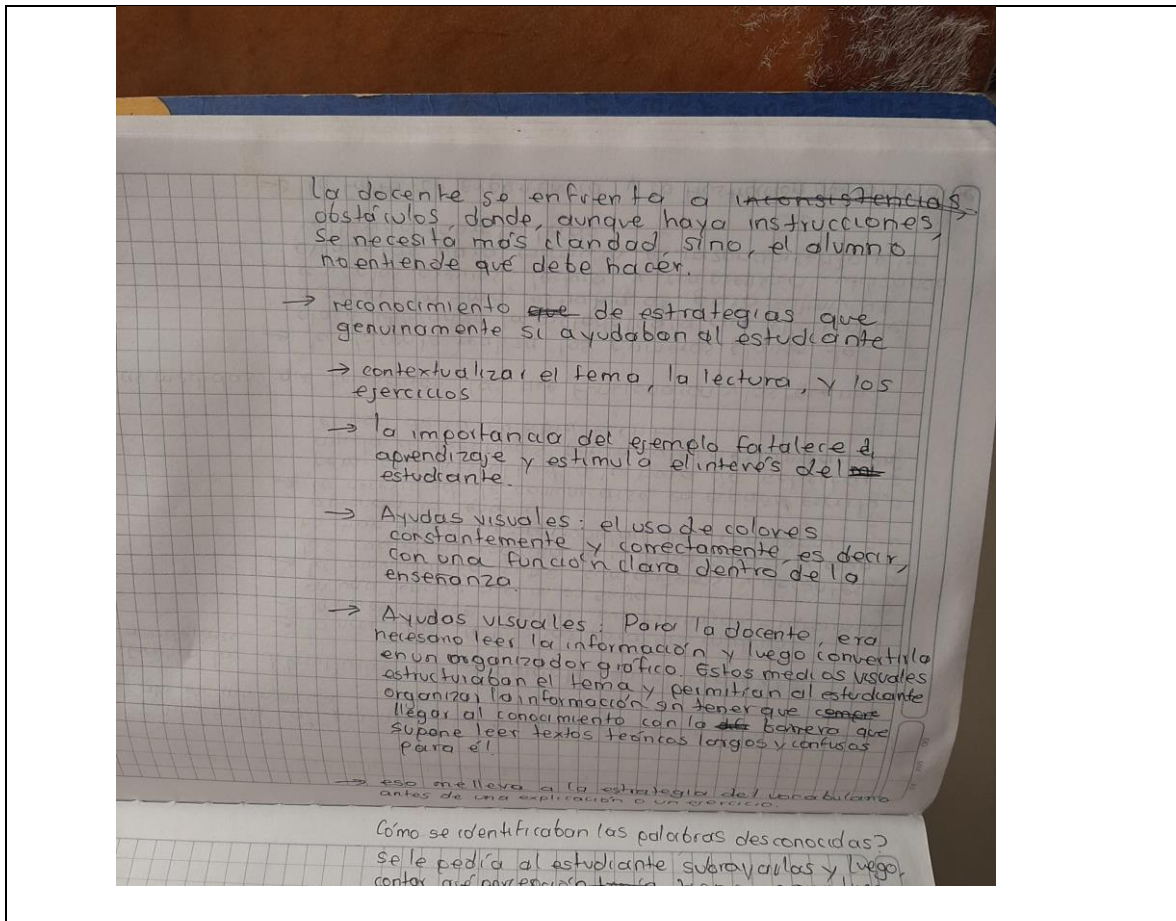 la docente se enfrenta a inconsistencias,
obstáculos, donde, aunque haya instrucciones,
se necesita más claridad, sino, el alumno
no entiende qué debe hacer.
→ reconocimiento que de estrategias que
genuinamente si ayudaban al estudiante
→ contextualizar el tema, la lectura, y los
ejercicios
→ la importancia del ejemplo fortalece el
aprendizaje y estimula el interés del
estudiante.
→ Ayudas visuales: el uso de colores
constantemente y correctamente, es decir,
con una función clara dentro de la
enseñanza.
→ Ayudas visuales: Para la docente, era
necesario leer la información y luego convertirla
en un organizador gráfico. Estos medios visuales
estructuraban el tema y permitían al estudiante
organizar la información sin tener que
llegar al conocimiento con la barrera que
supone leer textos teóricos largos y confusos
para él.
→ eso me lleva a la estrategia del vocabulario
antes de una explicación o un ejercicio.
Cómo se identificaban las palabras desconocidas?
se le pedía al estudiante subrayarlas y luego,
contar qué